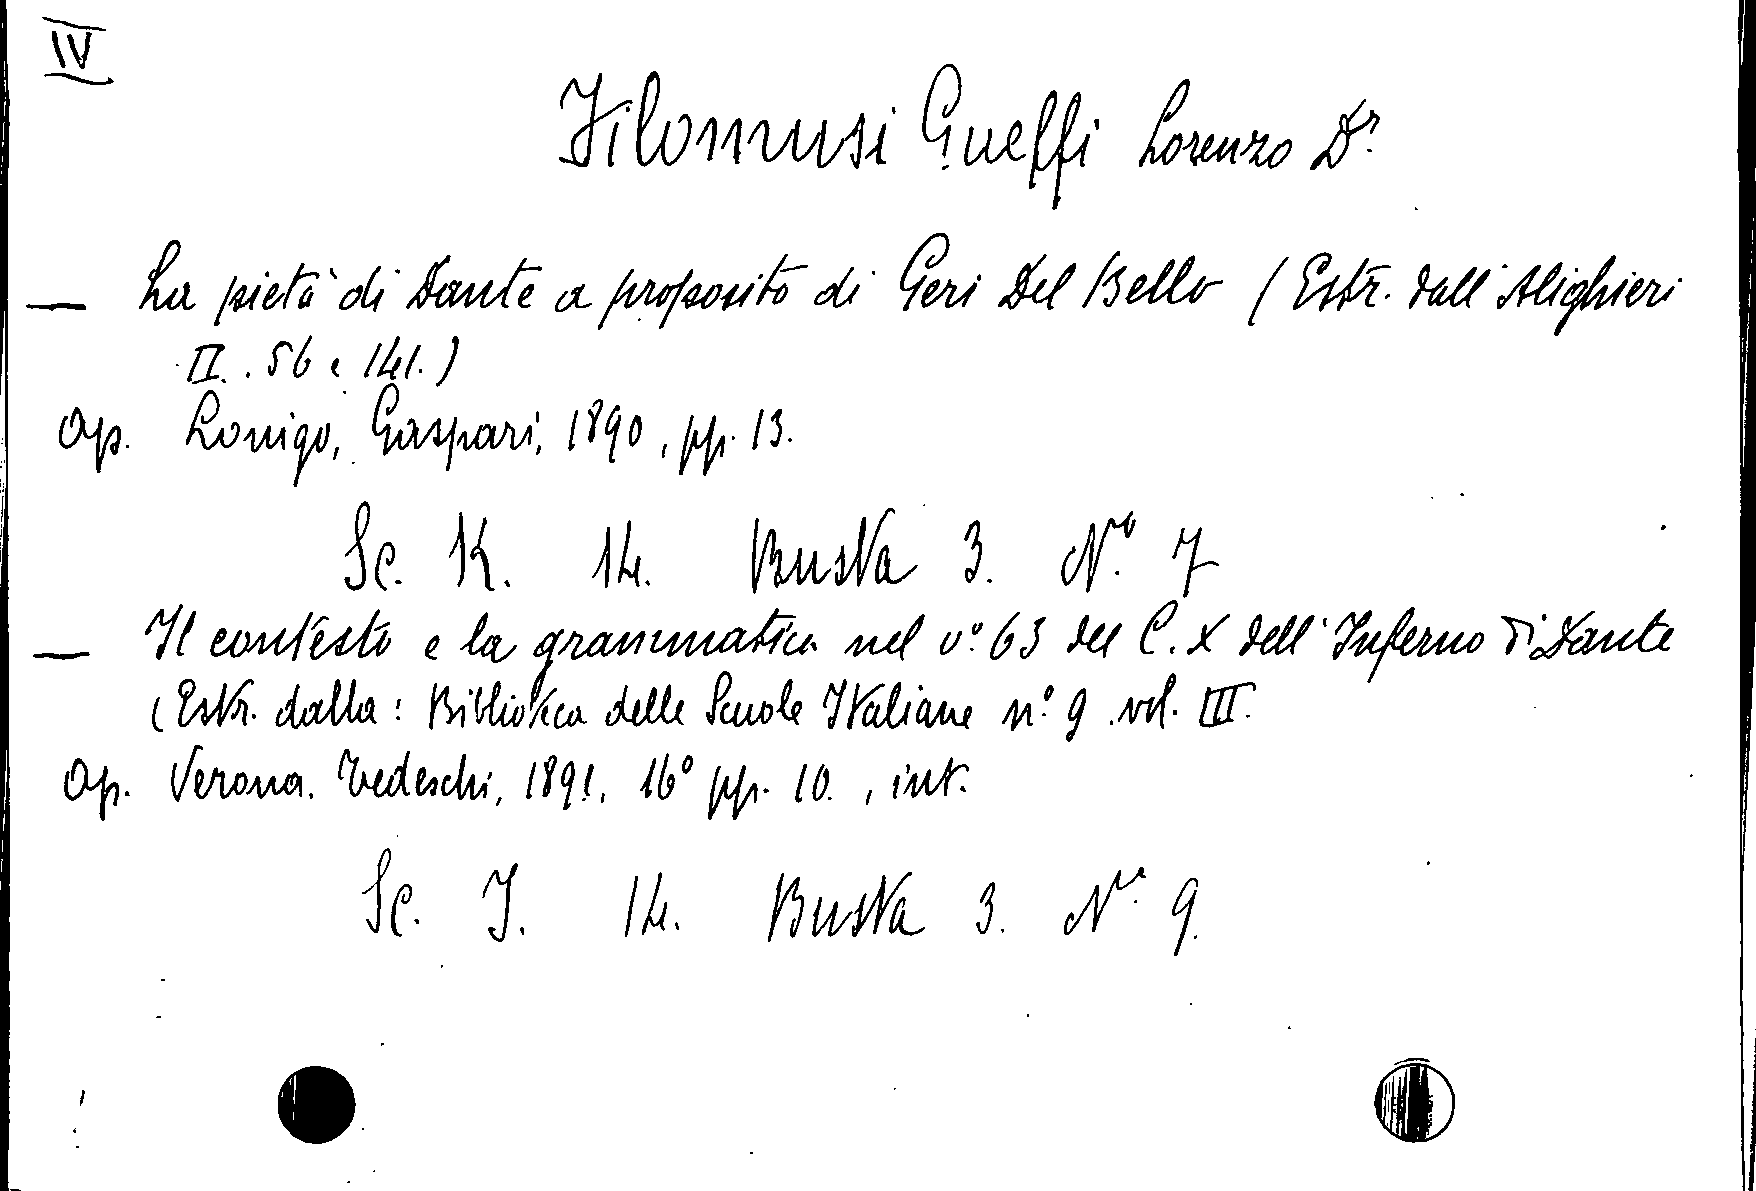 IV
Filomusi Guelfi Lorenzo Dr.
— La pietà di Dante a proposito di Geri Del Bello (Estr. dall'Alighieri
II. . 56 e 141.)
Op. Lonigo, Gaspari, 1890, pp. 13.
Sc. K. 14. Busta 3. No. 7
— Il contesto e la grammatica nel v.° 63 del C. X dell'Inferno di Dante
(Estr. dalla: Biblioteca delle Scuole Italiane n.° 9 vol. III.
Op. Verona. Tedeschi, 1891. 16° pp. 10. , int.
Sc. I. 14. Busta 3. No. 9.